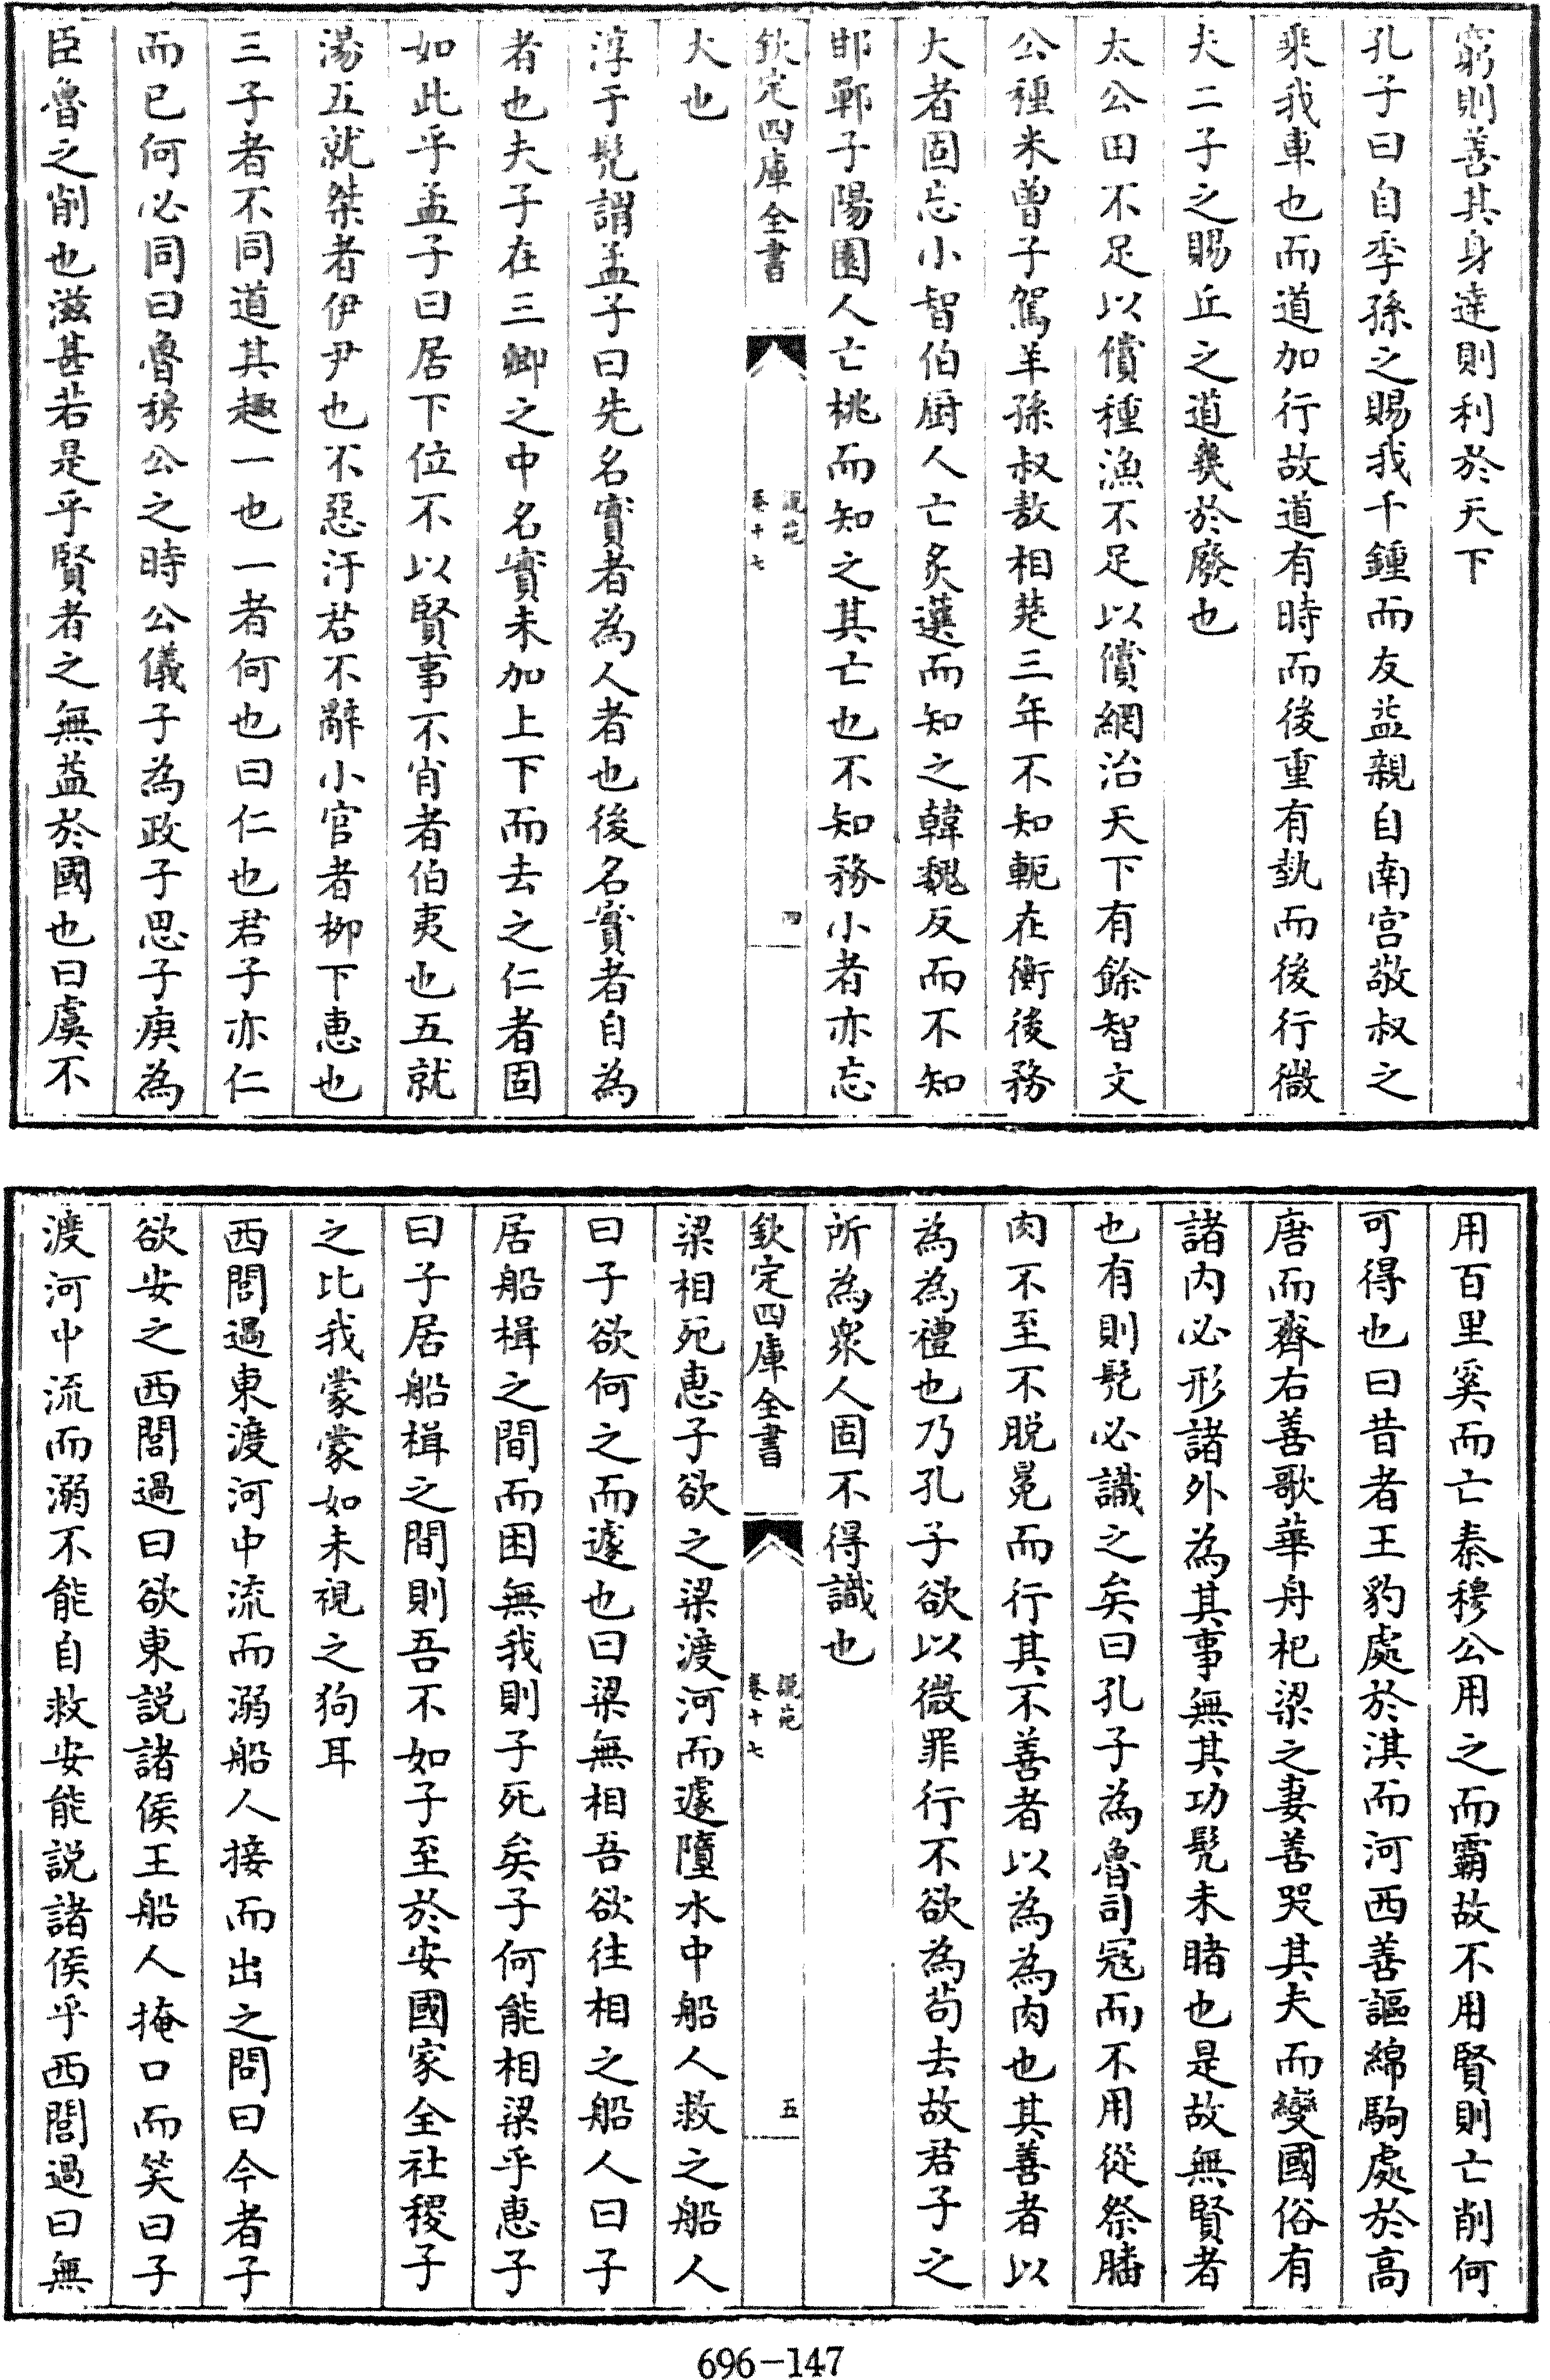 窮則善其身達則利於天下
孔子曰自季孫之賜我千鍾而友益親自南宫敬叔之
乘我車也而道加行故道有時而後重有勢而後行微
夫二子之賜丘之道幾於廢也
太公田不足以償種漁不足以償網治天下有餘智文
公種米曾子駕羊孫叔敖相楚三年不知軛在衡後務
大者固忘小智伯厨人亡炙𥳑而知之韓魏反而不知
邯鄲子陽園人亡桃而知之其亡也不知務小者亦忘
大也
欽定四庫全書
説苑
卷十七
四
淳于髠謂孟子曰先名實者為人者也後名實者自為
者也夫子在三卿之中名實未加上下而去之仁者固
如此乎孟子曰居下位不以賢事不肖者伯夷也五就
湯五就桀者伊尹也不惡汙君不辭小官者柳下惠也
三子者不同道其趣一也一者何也曰仁也君子亦仁
而已何必同曰魯穆公之時公儀子為政子思子庚為
臣魯之削也滋甚若是乎賢者之無益於國也曰虞不
用百里奚而亡秦穆公用之而霸故不用賢則亡削何
可得也曰昔者王豹處於淇而河西善謳綿駒處於高
唐而齊右善歌華舟杞梁之妻善哭其夫而變國俗有
諸内必形諸外為其事無其功髠未睹也是故無賢者
也有則髠必識之矣曰孔子為魯司冦而不用從祭膰
肉不至不脱冕而行其不善者以為為肉也其善者以
為為禮也乃孔子欲以微罪行不欲為苟去故君子之
所為衆人固不得識也
欽定四庫全書
説苑
卷十七
五
梁相死惠子欲之梁渡河而遽墮水中船人救之船人
曰子欲何之而遽也曰梁無相吾欲往相之船人曰子
居船楫之間而困無我則子死矣子何能相梁乎惠子
曰子居船楫之間則吾不如子至於安國家全社稷子
之比我蒙蒙如未視之狗耳
西閭過東渡河中流而溺船人接而出之問曰今者子
欲安之西閭過曰欲東説諸侯王船人掩口而笑曰子
渡河中流而溺不能自救安能説諸侯乎西閭過曰無
696-147